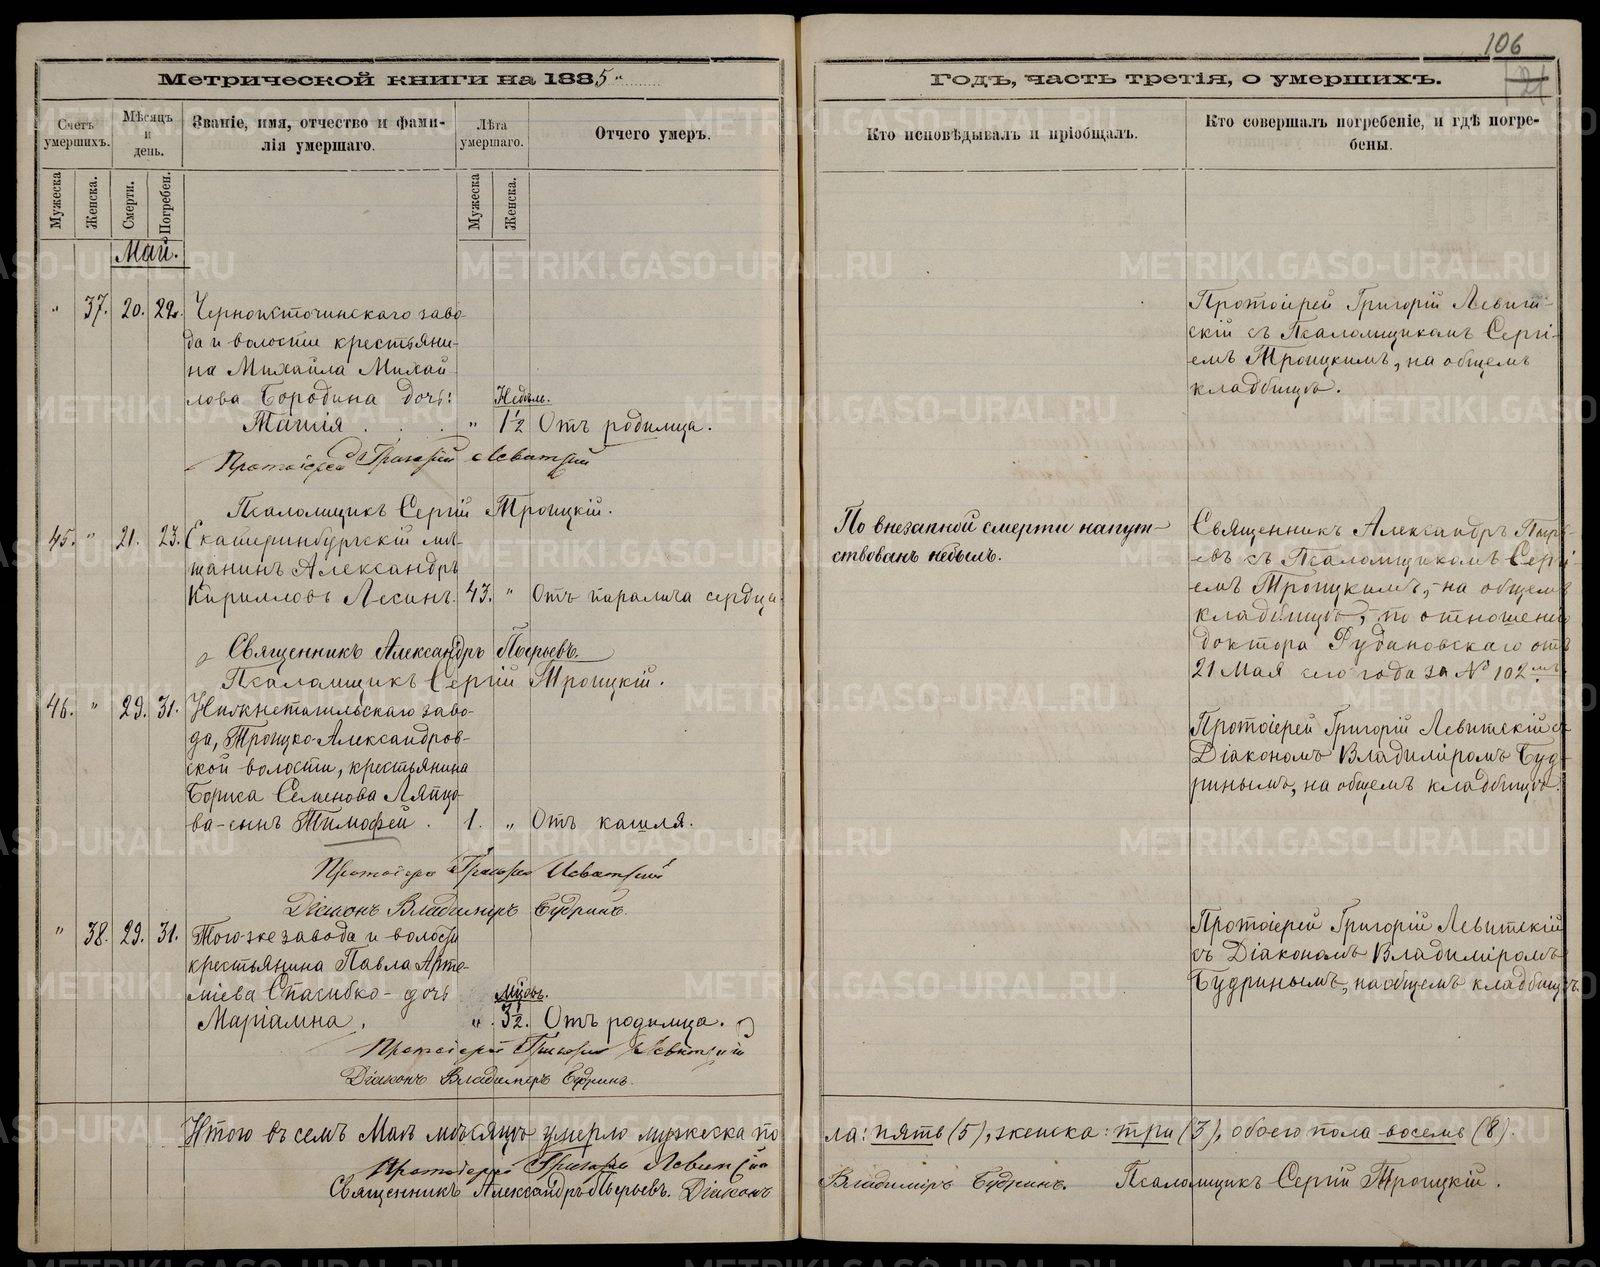 106
Метрической книги на 1885"
Счетъ умершихъ.
Мѣсяцъ и день.
Званіе, имя, отчество и фами-
лія умершаго.
Лѣта умершаго.
Отчего умеръ.
Мужеска
Женска.
Смерти.
Погребен.
Мужеска
Женска.
Май.
" 37. 20. 22. Черноисточинскаго заво-
да и волости крестьяни-
на Михаила Михай-
лова Бородина дочь: Недѣль.
Таисія . . . " 1½ Отъ родимца.
Протоіерей Григорій Левитскій
Псаломщикъ Сергій Троицкій.
45. " 21. 23. Екатеринбургскій мѣ-
щанинъ Александръ
Кирилловъ Лесинъ. 43. " Отъ паралича сердца.
Священникъ Александръ
Псаломщикъ Сергій Троицкій.
46. " 29. 31. Нижнетагильскаго заво-
да, Троицко-Александров-
ской волости, крестьянина
Бориса Семенова Ляпцо-
ва-сынъ Тимофей . 1. " Отъ кашля.
Протоіерей Григорій Левитскій
Діаконъ Владимиръ Будринъ.
" 38. 29. 31. Тогоже завода и волости
крестьянина Павла Арте-
міева Спасибко-дочь Мѣсяц.
Маріамна. " 3½. Отъ родимца.
Протоіерей Григорій Левитскій
Діаконъ Владимиръ Будринъ.
Итого въ семъ Маѣ мѣсяцѣ умерло мужеска по
Протоіерей Григорій Левитскій
Священникъ Александръ Діаконъ
Годъ, часть третія, о умершихъ.
Кто исповѣдывалъ и пріобщалъ.
Кто совершалъ погребеніе, и гдѣ погре-
бены.
Протоіерей Григорій Левит-
скій съ Псаломщикомъ Сергі-
емъ Троицкимъ, на общемъ
кладбищѣ.
По внезапной смерти напут-
ствованъ небылъ.
Священникъ Александръ
евъ съ Псаломщикомъ Сергі-
емъ Троицкимъ, на общемъ
кладбищѣ, по отношенію
доктора Рудановскаго отъ
21 Мая сего года за № 102мъ.
Протоіерей Григорій Левитскій съ
Діакономъ Владиміромъ Буд-
ринымъ, на общемъ кладбищѣ.
Протоіерей Григорій Левитскій
съ Діакономъ Владиміромъ
Будринымъ, на общемъ кладбищѣ.
ла: пять (5), женска: три (3), обоего пола восемь (8).
Владиміръ Будринъ. Псаломщикъ Сергій Троицкій.
METRIKI.GASO-URAL.RU